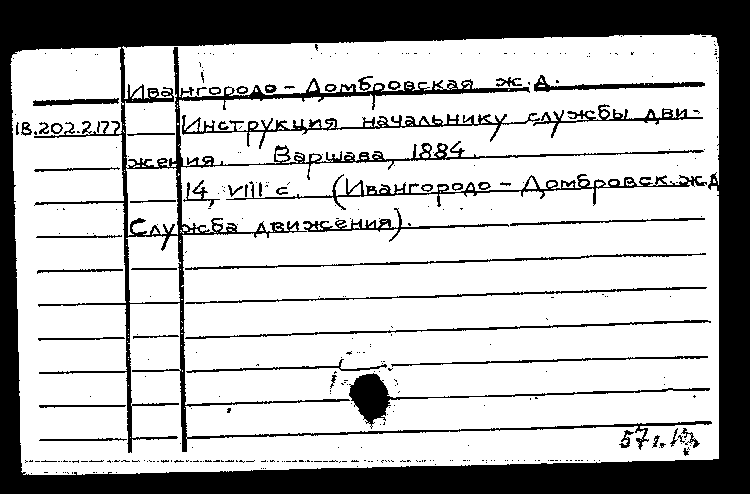 Ивангородо-Домбровская ж.д.
18.202.2.177 Инструкция начальнику службы дви-
жения. Варшава, 1884.
14, VIII с. (Ивангородо-Домбровск.ж.д
Служба движения).
57г.